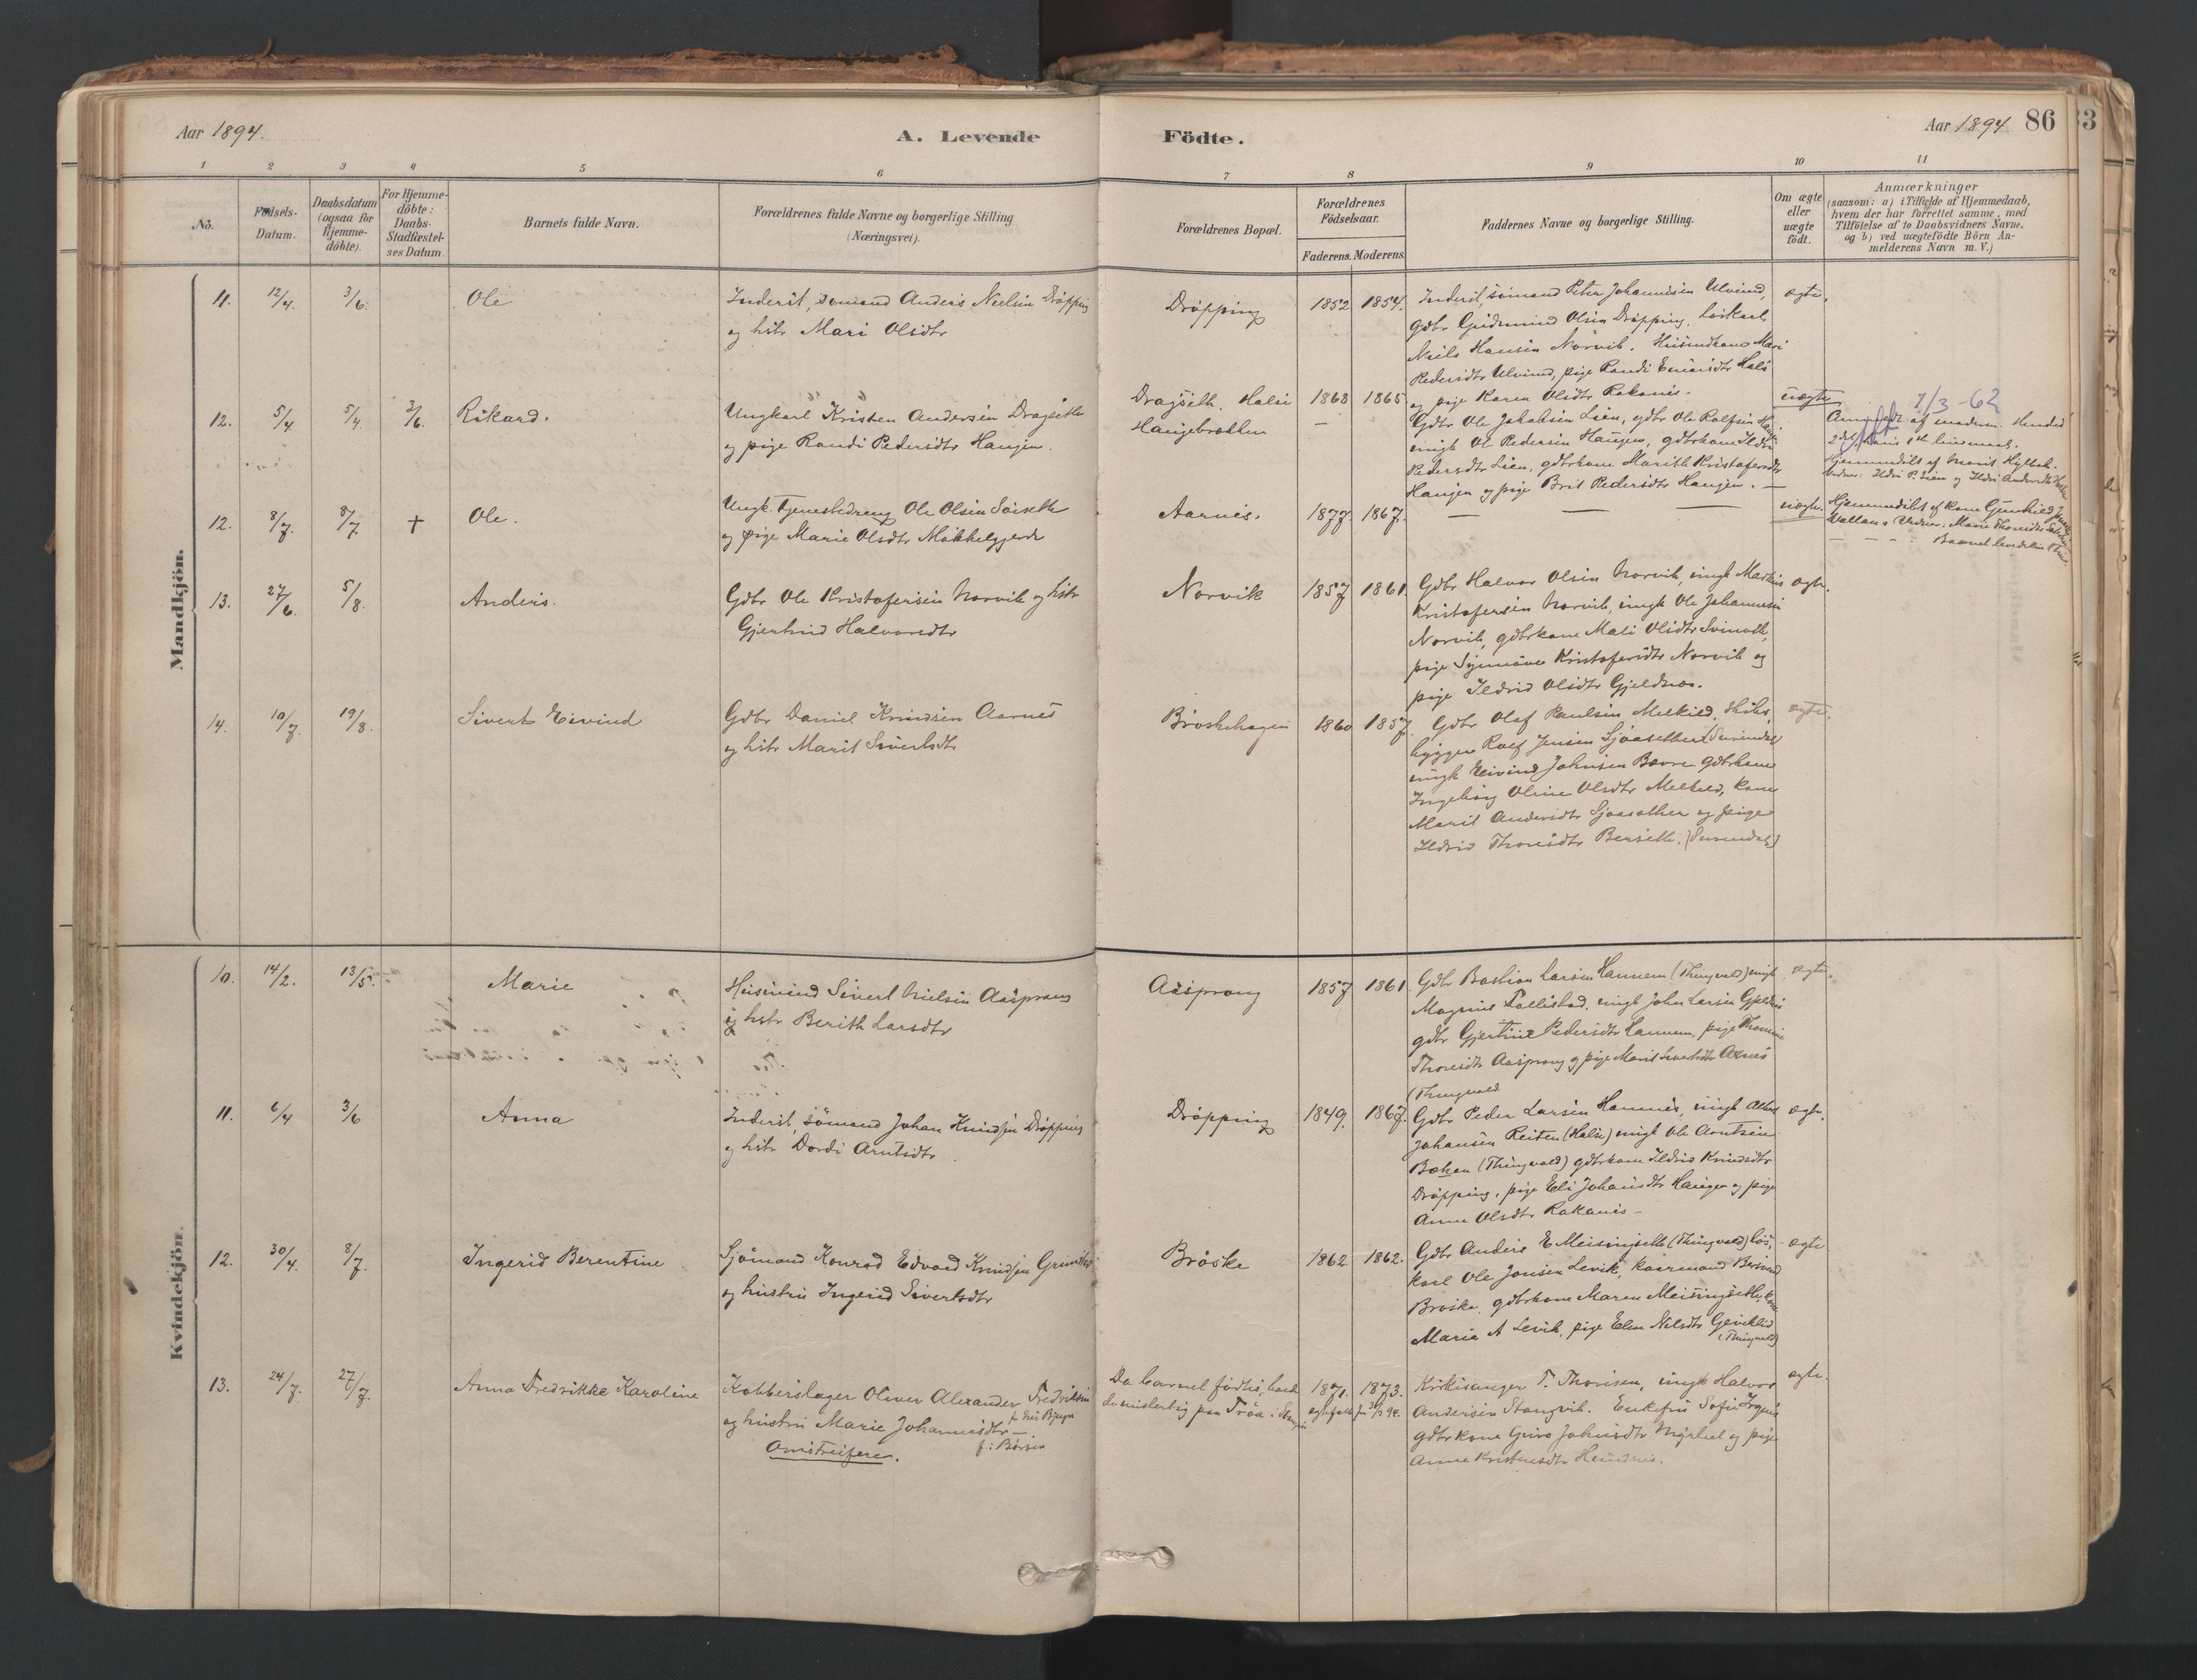 Aar 1894.
A. Levende Födte.
Aar 1894 86
33
1 2 3 4 5 6 7 8 9 10 11
No.
Fødsels-Datum.
Daabsdatum (ogsaa for Hjemme-döbte).
For Hjemme-döbte: Daabs-Stadfæstel-ses Datum.
Barnets fulde Navn.
Forældrenes fulde Navne og borgerlige Stilling (Næringsvei).
Forældrenes Bopæl.
Forældrenes Födselsaar.
Faderens. Moderens.
Faddernes Navne og borgerlige Stilling.
Om ægte eller uægte födt.
Anmærkninger
(saasom: a) i Tilfælde af Hjemmedaab,
hvem der har forrettet samme, med
Tilföielse af to Daabsvidners Navne.
og b) ved uægtefödte Börn An-
melderens Navn m.V.)
Mandkjön.
11. 12/4. 3/6. Ole
Inderst, sömand Anders Nielsen Dröpping
og hstr Mari Olsdtr
Dröpping 1852 1854.
Inderst, sömand Peter Johannesen Ulvund,
gdbr Gudmund Olsen Dröpping, Löskarl
Niels Hansen Norvik. Husmdkone Mari
Pedersdtr Ulvund, pige Randi Einarsdtr Hals
og pige Karen Olsdtr Rakanes.
ægte.
12. 5/4. 5/4. 3/6. Rikard.
Ungkarl Kristen Andersen Dragseth
og pige Randi Pedersdtr Haugen.
Dragseth, Halse 1868 1865
Haugebrækken
Gdbr Ole Jakobsen Lien, gdbr Ole Rolfsen
ungk Ole Pedersen Haugen, gdbrkone Ildri
Pedersdtr Lien, gdbrkone Marith Kristofersdtr
Haugen og pige Brit Pedersdtr Haugen. —
uægte
1/3-62
af moderen. Hendes
2det, hans 1ste leiermaal.
Hjemmedöbt af Marit
Vidner: Ildri P. Lien og Ildri Andersdtr
12. 8/7. 8/7 + Ole.
Ungk. Tjenestedreng Ole Olsen Söiseth
og pige Marie Olsdtr Mökkelgjerde
Aarnes. 1877. 1867. — — —
uægte. Hjemmedöbt af kone Gunhild
Vidner: Marie Thoresdtr
13. 27/6. 5/8. Anders.
Gdbr Ole Kristofersen Norvik og hstr
Gjertrud Halvorsdtr
Norvik 1857 1861.
Gdbr Halvor Olsen Norvik, ungk Martinus
Kristofersen Norvik, ungk Ole Johannesen
Norvik, gdbrkone Mali Olsdtr Svinvik,
pige Synnöve Kristofersdtr Norvik og
pige Ildrid Olsdtr Gjeldnes.
ægte.
14. 10/7. 19/8. Sivert Eivind
Gdbr Daniel Knudsen Aarnes
og hstr Marit Sivertsdtr
Bröskehagen 1860 1857.
Gdbr Olaf Paulsen Melkild, Skibs-
bygger Rolf Jensen Sjöasæther (Surendal)
ungk Eivind Johnsen Bævre gdbrkone
Ingeborg Oline Olsdtr Melkild, kone
Marit Andersdtr Sjöasæther og pige
Ildrid Thoresdtr Berseth. (Surendal)
ægte.
Kvindekjön.
10. 14/2. 13/5. Marie
Husmand Sivert Nielsen Aasprong
og hstr Berith Larsdtr
Aasprong 1857 1861.
Gdbr Bastian Larsen Hannem (Thingvold) ungk
Magnus Tallestad, ungk John Larsen Gjeldnes
gdbr Gjertine Pedersdtr Hannem, pige Thomine
Thoresdtr Aasprong og pige Marit Sivertsdtr Aarnes
(Thingvold
ægte.
11. 6/4 3/6 Anna
Inderst, sömand Johan Knudsen Dröpping
og hstr Dordi Arntsdtr.
Dröpping 1849. 1867.
Gdbr Peder Larsen Hamnes, ungk Albert
Johansen Reiten (Halse) ungk Ole Arntsen
Bækken (Thingvold) gdbrkone Ildrid Knudsdtr
Dröpping, pige Eli Johansdtr Haugen og pige
Anne Olsdtr Rakanes —
ægte.
12. 30/4. 8/7. Ingerid Berentine
Sjömand Konrad Edvard Knudsen
og hustru Ingerid Sivertsdtr
Bröske 1862 1862.
Gdbr Anders E Meisingseth (Thingvold) lös-
karl Ole Jonsen Levik, kaarmand Bersvend
Bröske, gdbrkone Maren Meisingseth, kone
Marie A Levik, pige Elen Nilsdtr
(Thingvold)
ægte
13. 24/7. 27/7. Anna Fredrikke Karoline
Kobberslager Oliver Alexander Fredriksen
og hustru Marie Johannesdtr —
f. i Börsen
Omstreifere.
Da barnet födtes, havde
de midlertidig paa Tröa i Stangvik
1871. 1873.
Kirkesanger T. Thoresen, ungk Halvor
Andersen Stangvik. Enkefru Sofie Irgens
gdbrkone Guro Johnsdtr Myrhel og pige
Anne Kristensdtr
ægte.